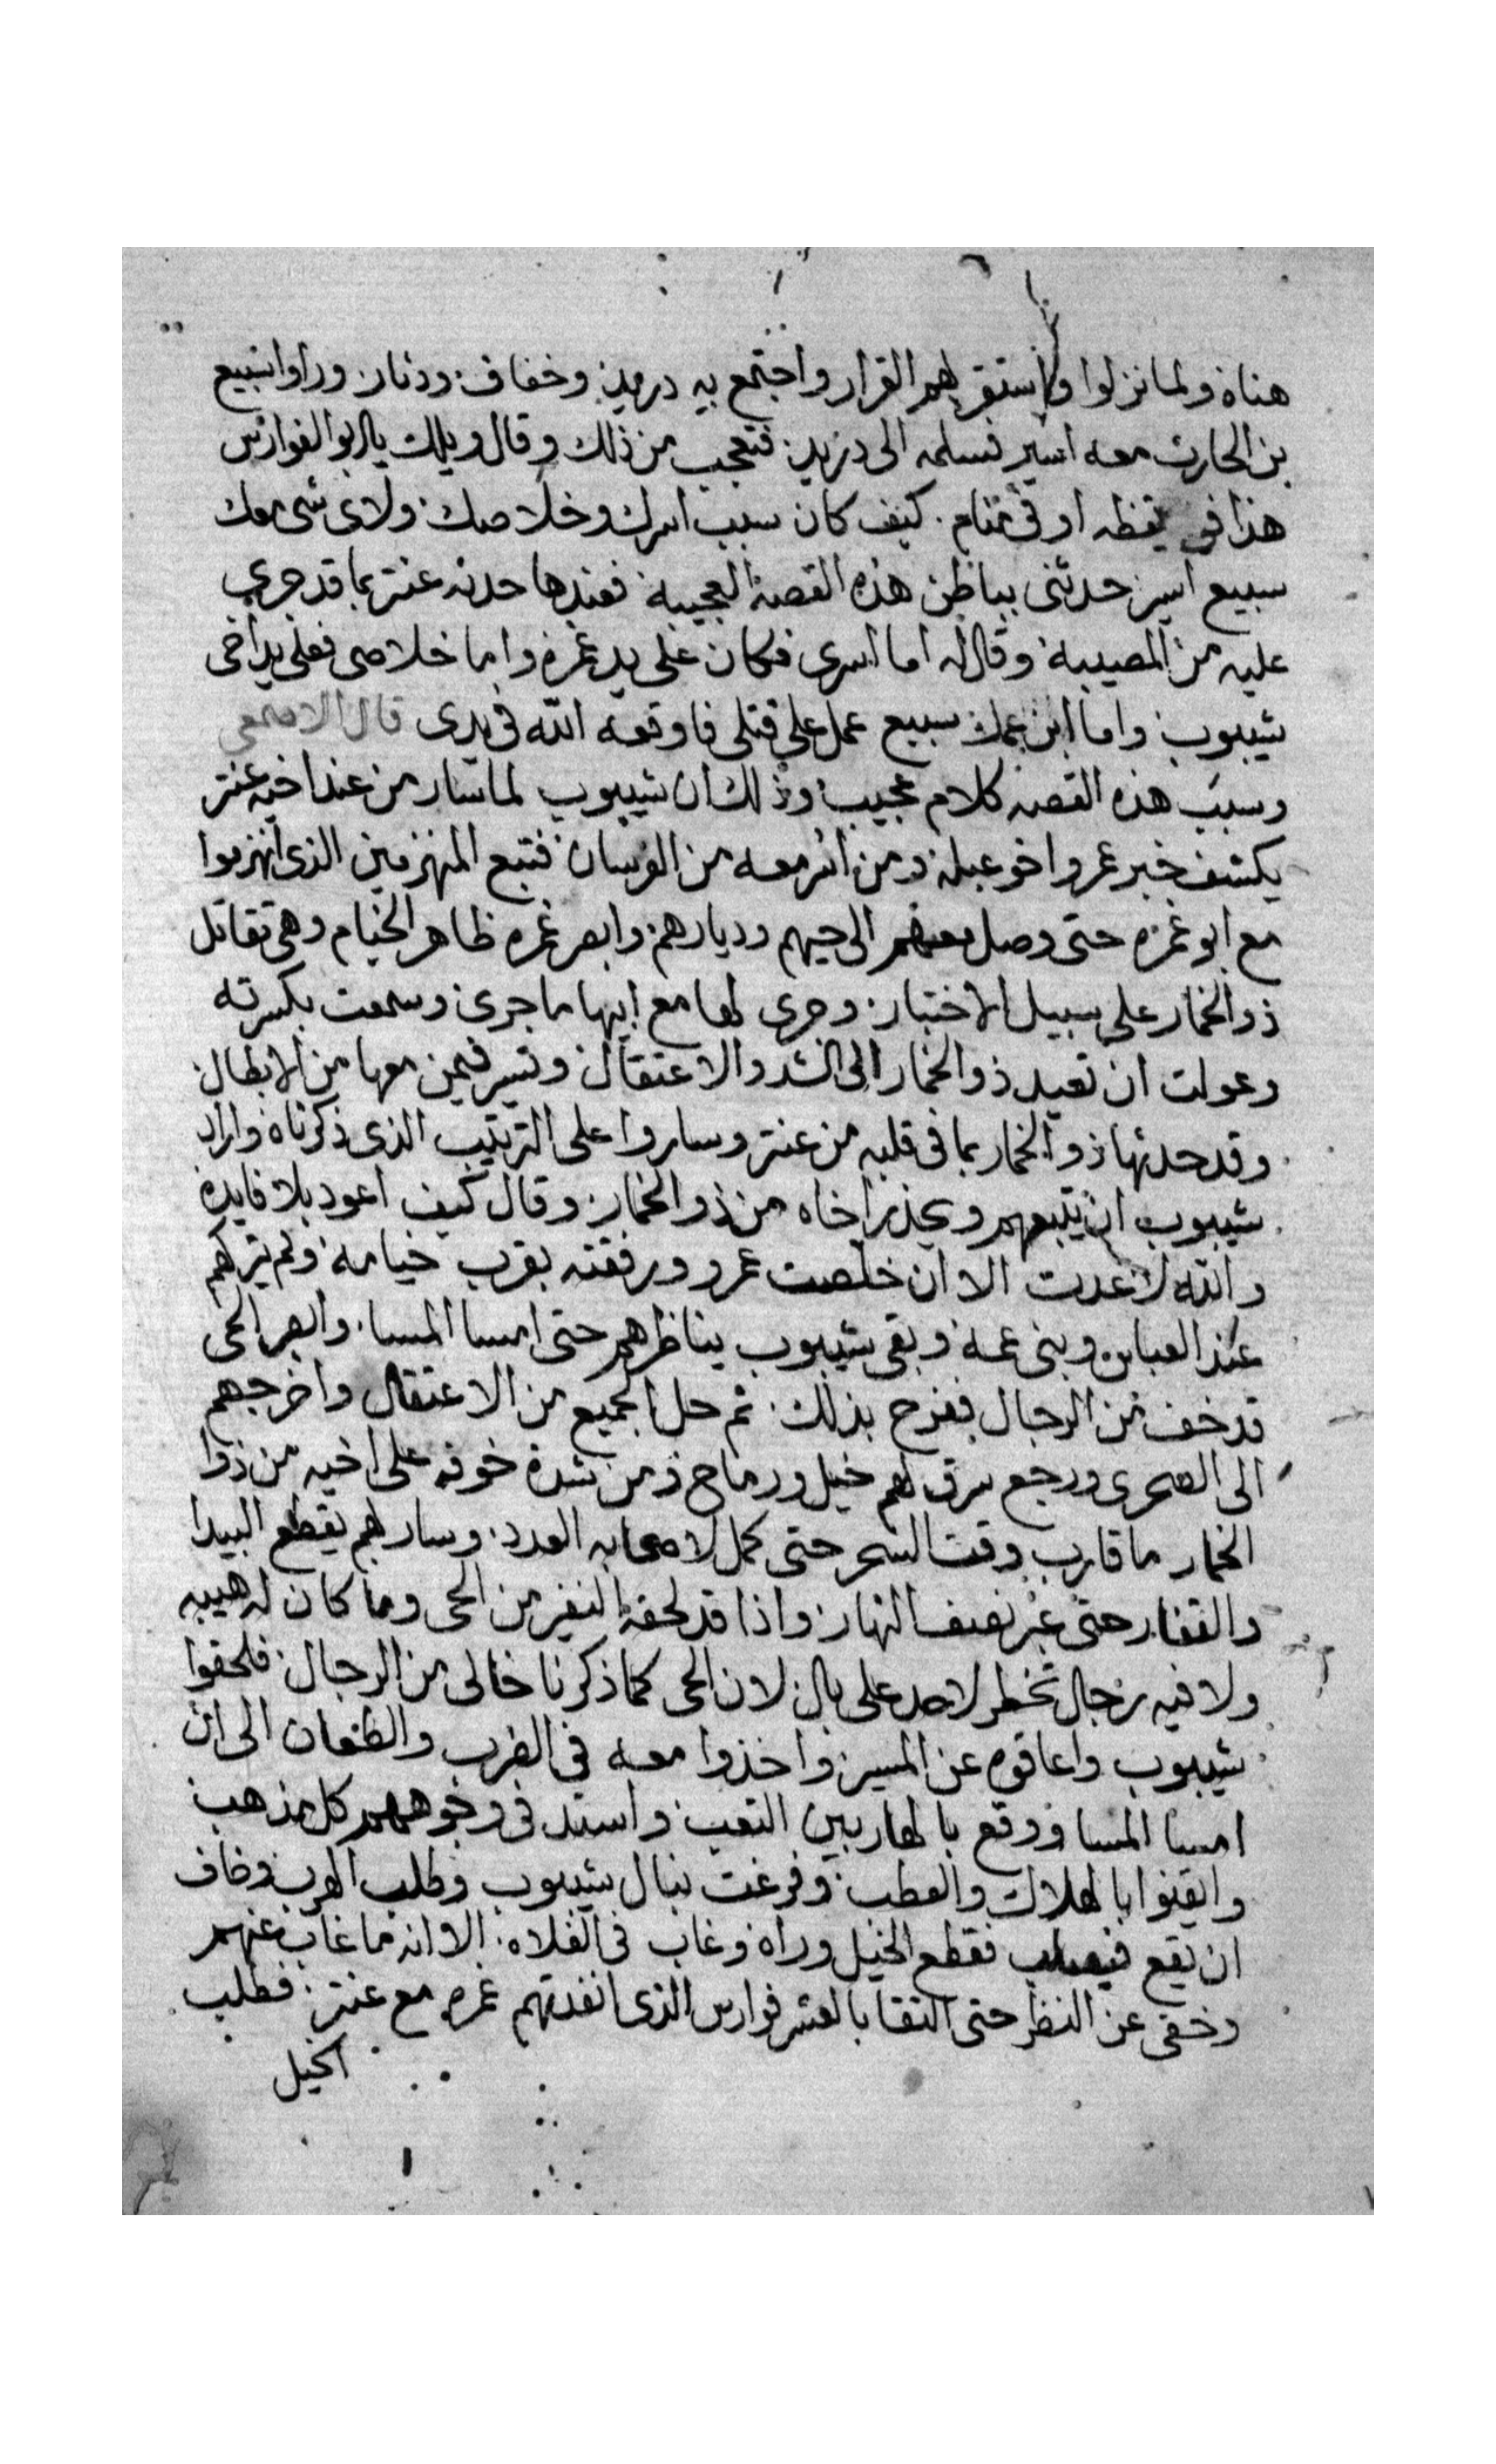 هناة ولما نزلوا واستقر لهم القرار واجتمع به دريد وخفاف ودثار وراوا سبيع
بن الحارث معه اسير فسلمه الى دريد فتعجب من ذلك وقال ويلك يابو الفوارس
هذا في يقظه او في منام كيف كان سبب اسرك وخلاصك ولاى شي معك
سبيع اسير حدثنى بباطن هذه القصة العجيبة فعندها حدثه عنتر بما قد جري
عليه من المصيبة وقال له اما اسرى فكان على يد غمره واما خلاصى فعلى يد اخى
شيبوب واما ابن عمك سبيع عمل على قتلى فاوقعه الله فى يدى قال الاصمعي
وسبب هذه القصه كلام عجيب وذلك ان شيبوب لما سار من عند اخيه عنتر
يكشف خبر عمرو اخو عبلة ومن اسر معه من الفرسان فتبع المنهزمين الذى انهزموا
مع ابو غمره حتى وصل معهم الى حيهم وديارهم وابصر غمره ظاهر الخيام وهى تقاتل
ذو الخمار على سبيل الاختبار وجرى لها مع ابيها ما جرى وسمعت بكسرته
وعولت ان تعيد ذو الخمار الى الشد والاعتقال وتسير فيمن معها من الابطال
وقد حدثها ذو الخمار بما فى قلبه من عنتر وساروا على الترتيب الذى ذكرناه واراد
شيبوب ان يتبعهم ويحذر اخاه من ذو الخمار وقال كيف اعود بلا فايدة
والله لا عدت الا ان خلصت عمرو ورفقته بقرب خيامه ولم يتركهم
عند العباس وبنى عمه وبقى شيبوب يناظرهم حتى امسا المسا وابصر الحى
قد خف من الرجال ففرح بذلك ثم حل الجميع من الاعتقال واخرجهم
الى الصحرى ورجع سرق لهم خيل ورماح ومن شدة خوفه على اخيه من ذوا
الخمار ما قارب وقت السحر حتى كمل لاصحابه العدد وسار بهم يقطع البيدا
والقفار حتى عبر نصف النهار واذا قد لحقه النفير من الحى وما كان له هيبه
ولا فيه رجال تخطر لاحد على بال لان الحى كما ذكرنا خالى من الرجال فلحقوا
شيبوب واعاقوه عن المسير واخذوا معه فى الضرب والطعان الى ان
امسا المسا ووقع بالهاربين التعب واستد فى وجوههم كل مذهب
وايقنوا بالهلاك والعطب وفرغت نبال شيبوب وطلب الهرب وخاف
ان يقع فيصلب فقطع الخيل وراه وغاب فى الفلاه الا انه ما غاب عنهم
وخفى عن النظر حتى التقا بالعشر فوارس الذى انفدتهم غمره مع عنتر فطلب
الخيل